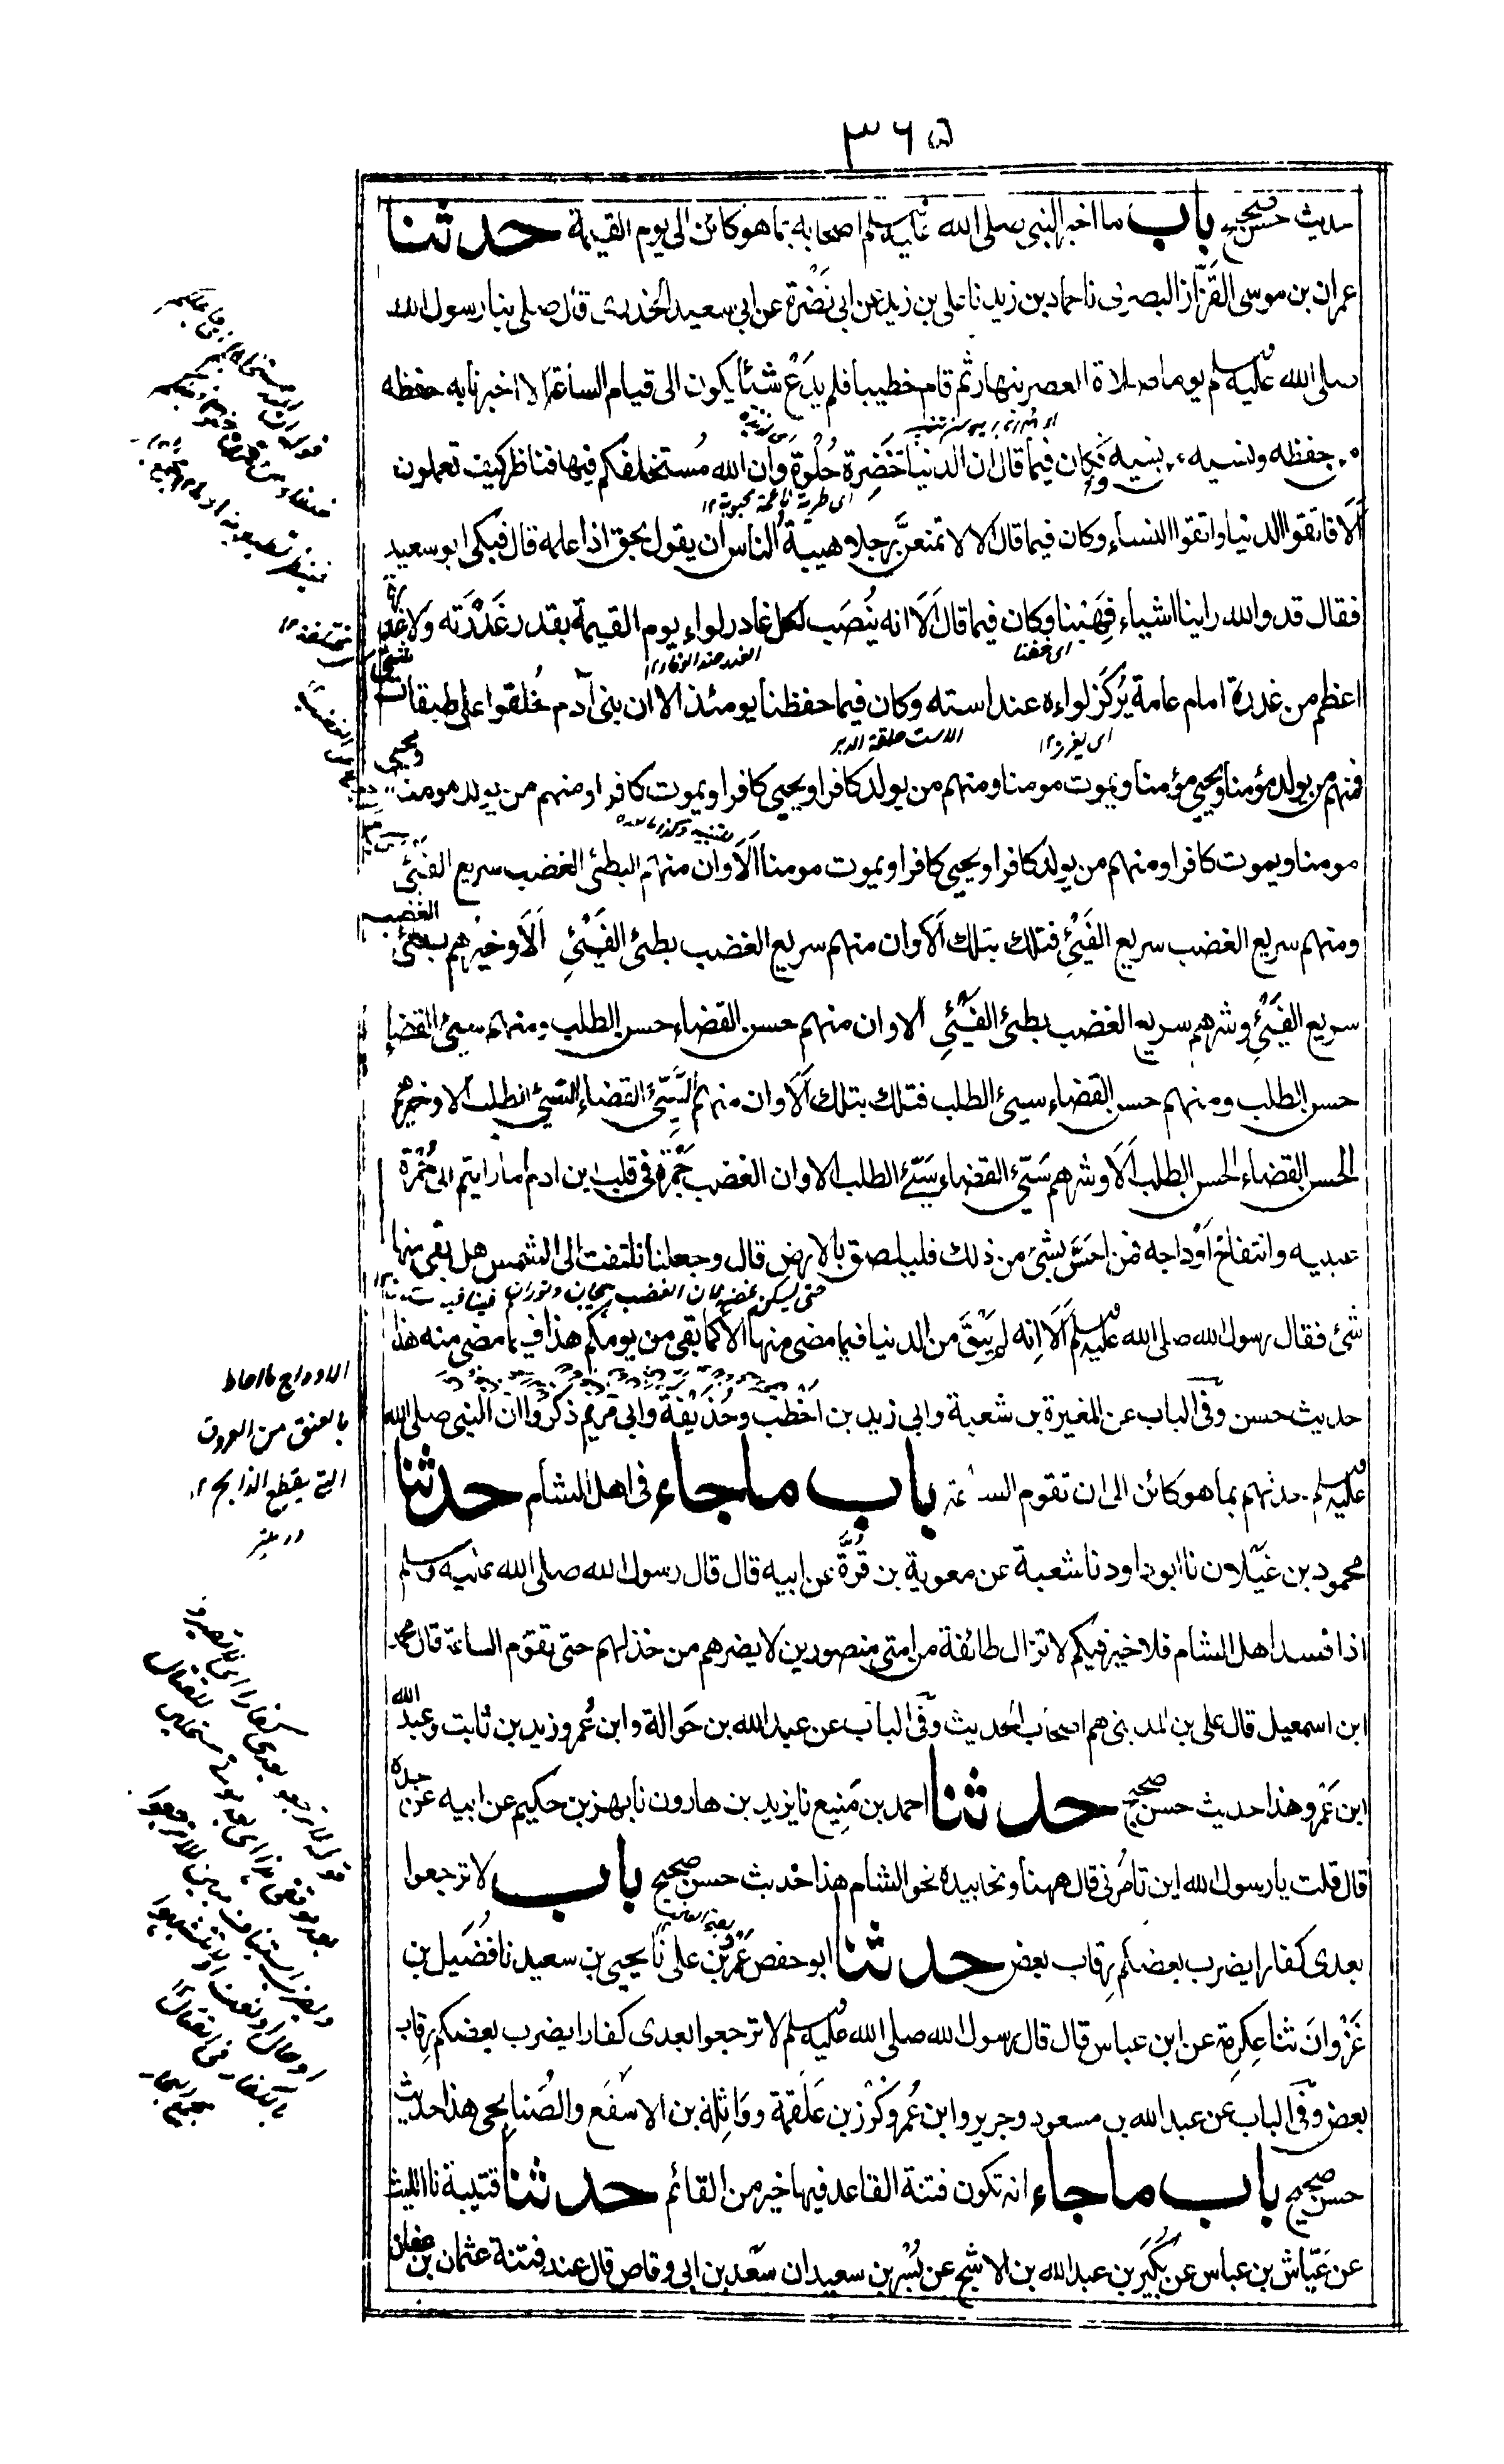 ۳۶۵
حديث حسن صحيح باب ما اخبر النبي صلى الله عليه وسلم اصحابه بما هو كائن الى يوم القيمة حدثنا
عمران بن موسى القَزّاز البصري نا حماد بن زيد نا على بن زيد عن ابى نَضْرة عن ابى سعيد الخدرى قال صلى بنا رسول الله
صلى الله عليه وسلم يوما صلاة العصر بنهار ثم قام خطيبا فلم يَدَعْ شيئا يكون الى قيام الساعة الا اخبرنا به حفظه
من حفظه ونسيه من نسيه فكان فيما قال ان الدنيا خَضِرة حُلْوة وان الله مُستخلفكم فيها فناظر كيف تعملون
اَلَا فاتقوا الدنيا واتقوا النساء وكان فيما قال الا لا تمنعنَّ رجلا هيبةُ الناس ان يقول بحق اذا علمه قال فبكى ابو سعيد
فقال قد والله راينا اشياء فهِبْنا وكان فيما قال اَلَا انه يُنصَب لكل غادر لواء يوم القيمة بقدر غَدْرَته ولا غدرة
اعظم من غدرة امام عامة يُركَز لواءه عند استه وكان فيما حفظنا يومئذ الا ان بنى آدم خُلقوا على طبقات شتى
فمنهم من يولد مؤمنا ويحيى مؤمنا ويموت مومنا ومنهم من يولد كافرا ويحيى كافرا ويموت كافرا ومنهم من يولد مومنا ويحيى
مومنا ويموت كافرا ومنهم من يولد كافرا ويحيى كافرا ويموت مومنا اَلَا وان منهم البطئ الغضب سريع الفَىْئ
ومنهم سريع الغضب سريع الفَىْئِ فتلك بتلك اَلَا وان منهم سريع الغضب بطئ الفَىْئِ اَلَا وخيرهم بطئ الغضب
سريع الفَىْئِ وشرهم سريع الغضب بطئ الفَىْئِ الا وان منهم حسن القضاء حسن الطلب ومنهم سيئ القضاء
حسن الطلب ومنهم حسن القضاء سيئ الطلب فتلك بتلك اَلَا وان منهم السَّيِّئ القضاء السَّيِّئ الطلب الا وخيرهم
الحسن القضاء الحسن الطلب اَلَا وشرهم سَيّئ القضاء سَيّئ الطلب الا وان الغضب جَمْرة فى قلب ابن ادم اما رايتم الى حُمْرة
عينيه وانتفاخ اَوْداجه فمن احَسَّ بشئ من ذلك فليلصق بالارض قال وجعلنا نلتفت الى الشمس هل بقى منها
شئ فقال رسول الله صلى الله عليه وسلم اَلَا اِنه لم يَبْقَ من الدنيا فيما مضى منها الا كما بقى من يومكم هذا فيما مضى منه هذا
حديث حسن وفى الباب عن المغيرة بن شعبة وابى زيد بن اَخْطَب وحُذَيْفة وابى مريم ذكروا ان النبى صلى الله
عليه وسلم حدثهم بما هو كائن الى ان تقوم الساعة باب ما جاء فى اهل الشام حدثنا
محمود بن غَيْلان نا ابو داود نا شعبة عن معوية بن قُرَّة عن ابيه قال قال رسول الله صلى الله عليه وسلم
اذا فسد اهل الشام فلا خير فيكم لا تزال طائفة من امتى منصورين لا يضرهم من خذلهم حتى تقوم الساعة قال محمد
ابن اسمعيل قال على بن المدينى هم اصحاب الحديث وفى الباب عن عبد الله بن حَوالة وابن عُمر وزيد بن ثابت وعبد الله
ابن عَمْرو وهذا حديث حسن صحيح حدثنا احمد بن مَنِيع نا يزيد بن هارون نا بهز بن حكيم عن ابيه عن جده
قال قلت يا رسول الله اين تامُرنى قال ههنا ونحا بيده نحو الشام هذا حديث حسن صحيح باب لا ترجعوا
بعدى كفارا يضرب بعضكم رقاب بعض حدثنا ابو حفص عَمْرو بن على نا يحيى بن سعيد نا فُضَيل بن
غَزْوانَ ثنا عِكرِمة عن ابن عباس قال قال رسول الله صلى الله عليه وسلم لا ترجعوا بعدى كفارا يضرب بعضكم رقاب
بعض وفى الباب عن عبد الله بن مسعود وجرير وابن عُمر وكُرْز بن عَلقمة ووَاثِلة بن الاسقَع والصُّنابِحى هذا حديث
حسن صحيح باب ما جاء انه تكون فتنة القاعد فيها خير من القائم حدثنا قتيبة نا الليث
عن عَيّاش بن عباس عن بُكَيْر بن عبد الله بن الاشج عن بُسْر بن سعيد ان سَعْد بن ابى وقاص قال عند فتنة عثمان بن عفان
اى طرية ناعمة محبوبة ١٢
اى خفنا
اى يغرز ١٢
الاست حلقة الدبر
الاوداج ما احاط
بالعنق من العروق
التى يقطع الذابح ١٢